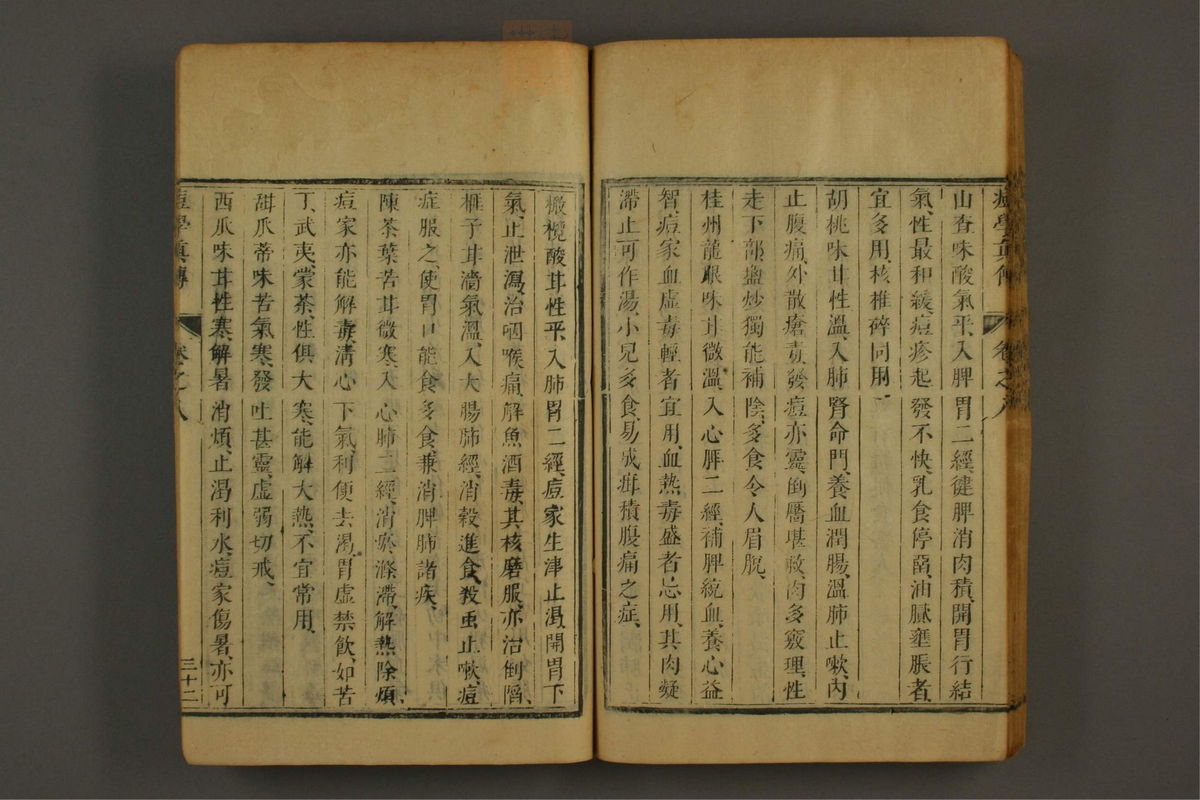 痘學真傳 卷之八
山查味酸氣平、入脾胃二經、健脾消肉積、開胃行結
氣、性最和緩、痘疹起發不快、乳食停滯、油膩壅脹者、
宜多用、核椎碎同用、
胡桃味甘性溫、入肺腎命門、養血潤腸、溫肺止嗽、內
止腹痛、外散瘡毒、發痘亦靈、倒靨堪救、肉多竅理、性
走下部、鹽炒獨能補陰、多食令人眉脫、
桂州龍眼味甘微溫、入心脾二經、補脾統血、養心益
智、痘家血虛毒輕者宜用、血熱毒盛者忌用、其肉凝
滯止可作湯、小兒多食、易成疳積腹痛之症、
橄欖酸甘性平、入肺胃二經、痘家生津止渴、開胃下
氣、止泄瀉、治咽喉痛、解魚酒毒、其核磨服、亦治倒陷、
榧子甘濇氣溫、入大腸肺經、消穀進食、殺虫止嗽、痘
症服之、使胃口能食、多食、兼消脾肺諸疾、
陳茶葉苦甘微寒、入心肺二經、消瘀滌滯、解熱除煩、
痘家亦能解毒、淸心下氣、利便去渴、胃虛禁飮、如苦
丁、武夷、蒙茶、性俱大寒、能解大熱、不宜常用、
甜瓜蒂味苦氣寒、發吐甚靈、虛弱切戒、
西瓜味甘性寒、解暑消煩、止渴利水、痘家傷暑、亦可
痘學真傳 卷之八 三十二